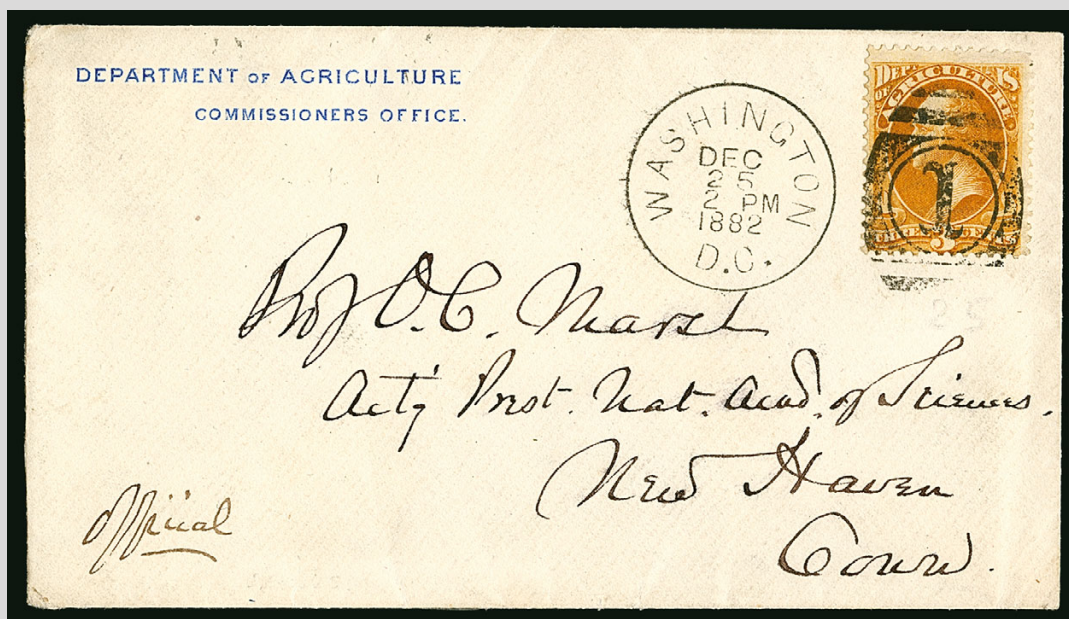 DEPARTMENT OF AGRICULTURE
COMMISSIONERS OFFICE.
WASHINGTON
DEC
25
2 PM
1882
D.C.
DEPT. OF AGRICULTURE U.S.
1
3
Prof O. C. Marsh
Actg Prest. Nat. Acad. of Sciences.
New Haven
Conn.
Official